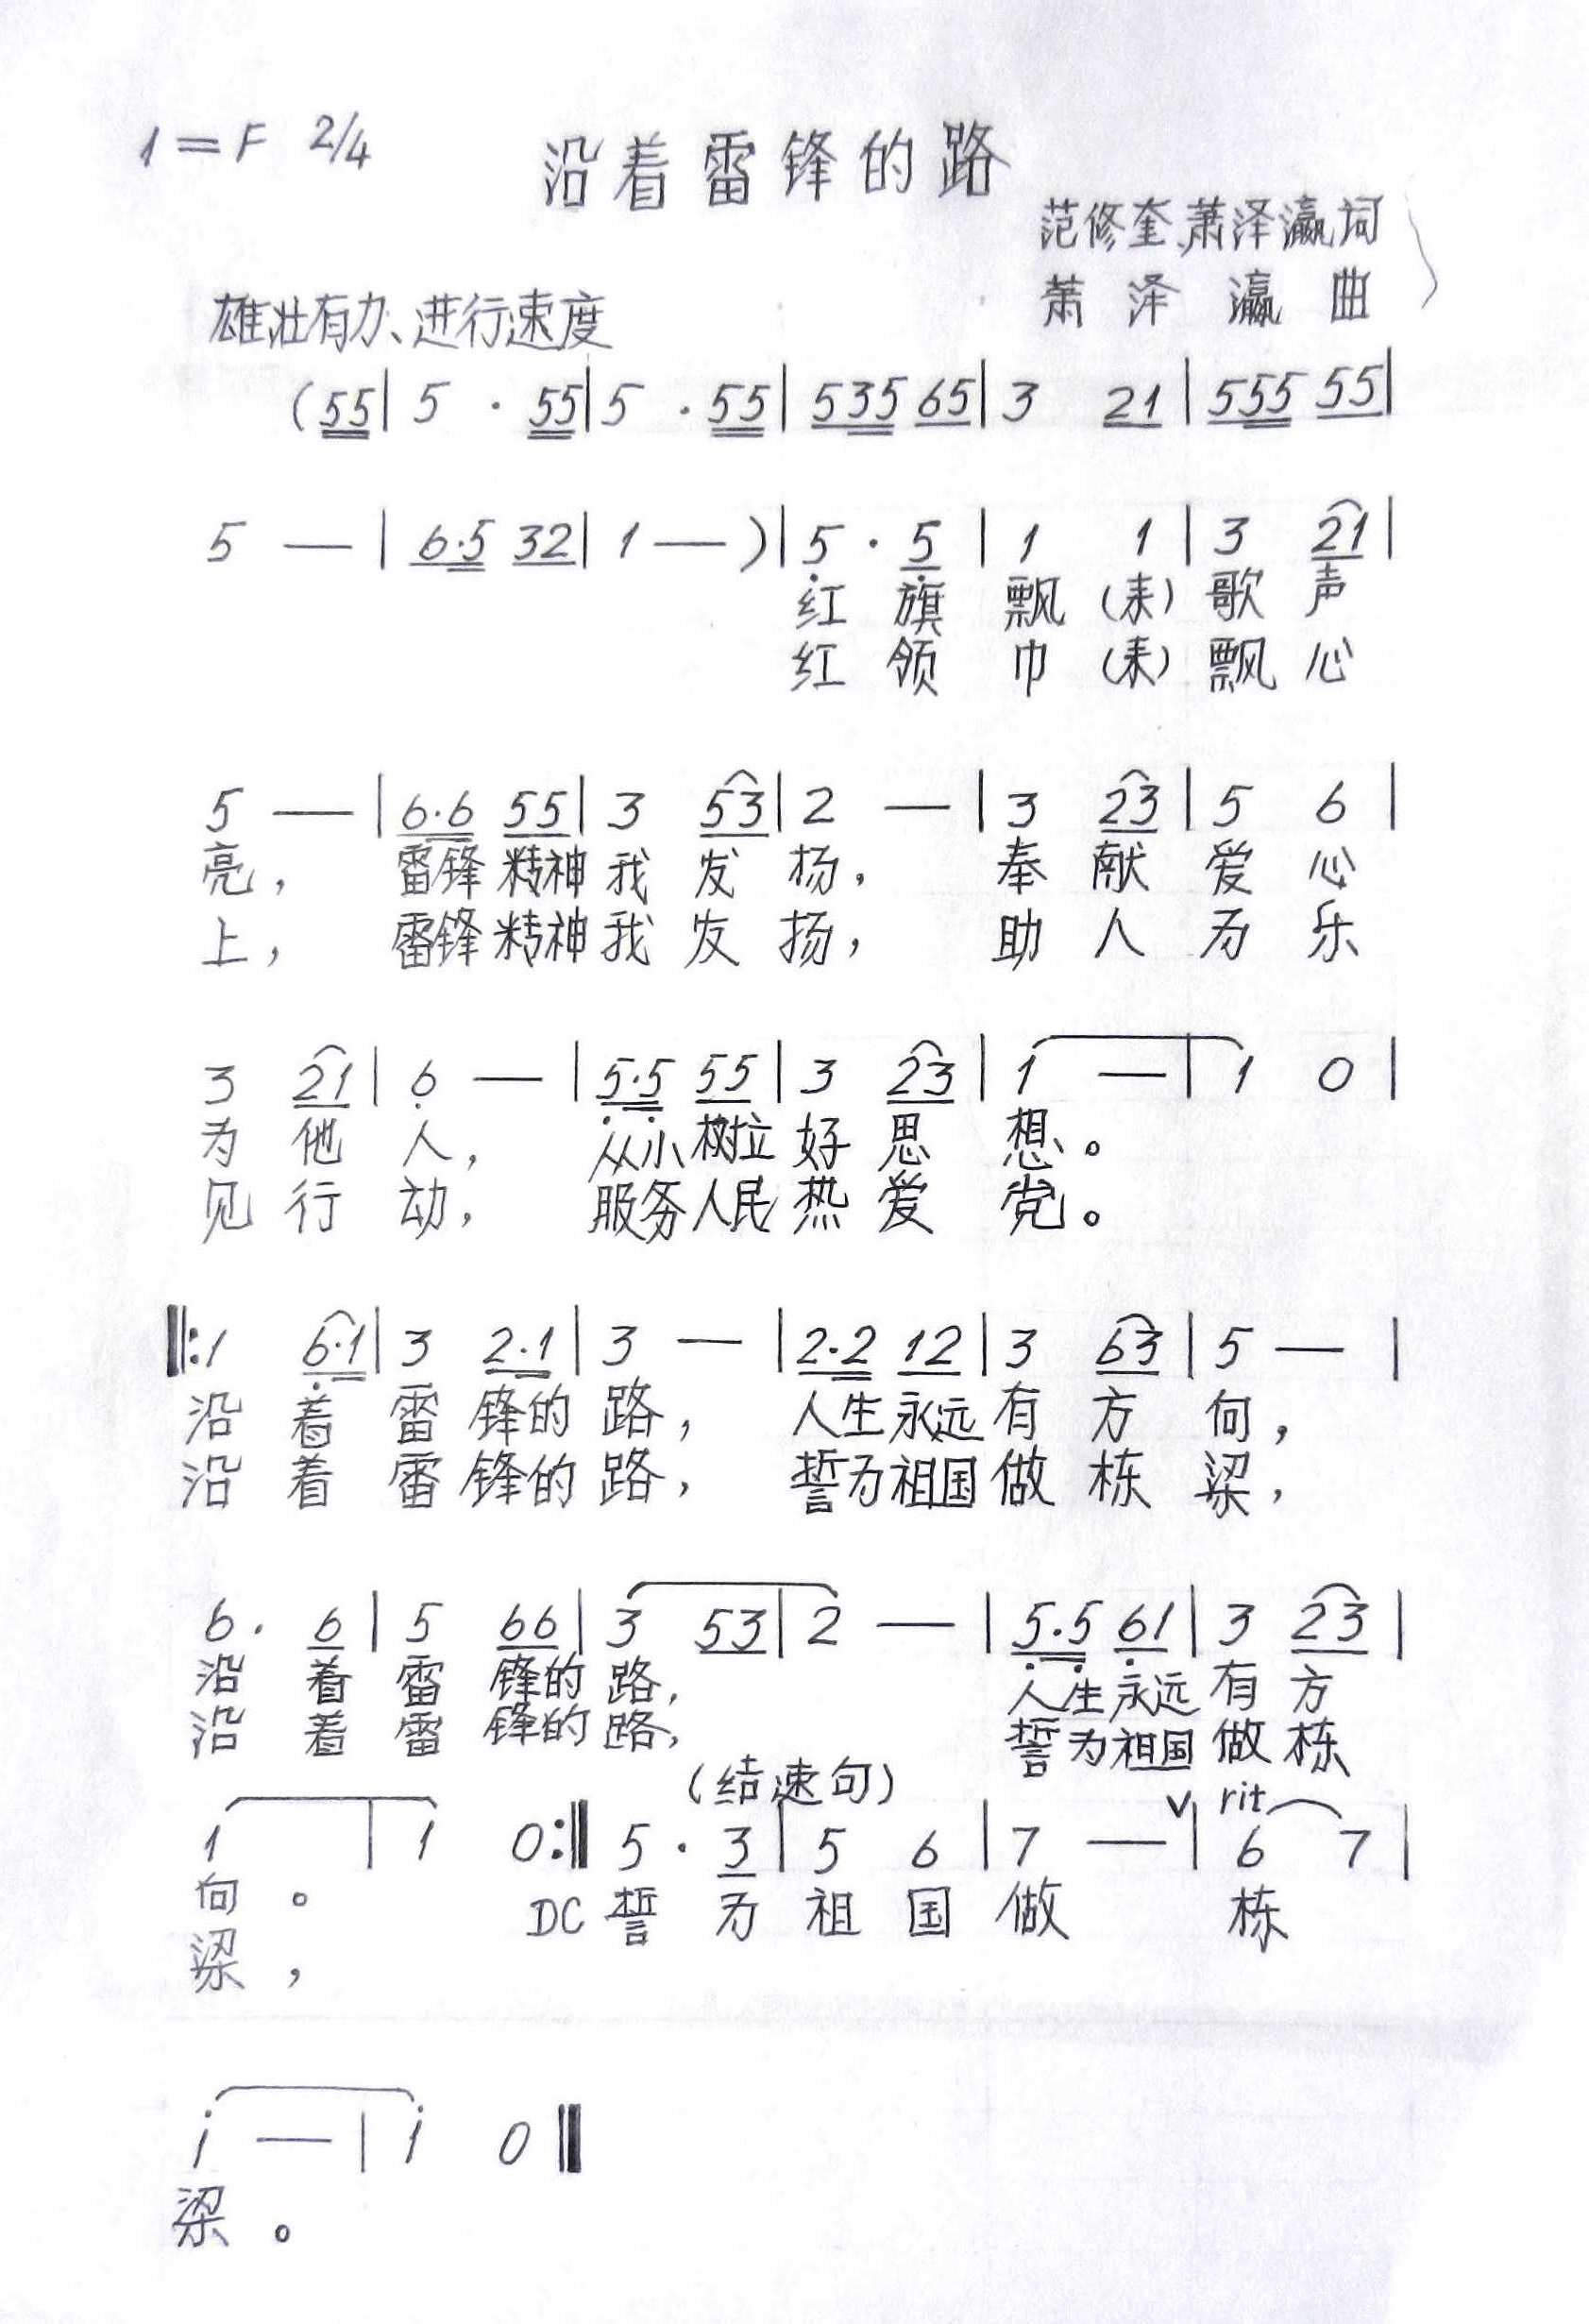 1=F 2/4 沿着雷锋的路
范修奎、萧泽瀛词
萧泽瀛曲
雄壮有力、进行速度
(55|5·55|5·55|535 65|3 21|555 55|
5 —|6·5 32|1 —)|5·5|1 1|3 21|
红旗飘(来)歌声
红领巾(来)飘心
5 —|6·6 55|3 53|2 —|3 23|5 6|
亮，雷锋精神我发扬，奉献爱心
上，雷锋精神我发扬，助人为乐
3 21|6 —|5·5 55|3 23|1 —|1 0|
为他人，从小树立好思想。
见行动，服务人民热爱党。
‖:1 6·1|3 2·1|3 —|2·2 12|3 63|5 —|
沿着雷锋的路，人生永远有方向，
沿着雷锋的路，誓为祖国做栋梁，
6· 6|5 66|3 53|2 —|5·5 61|3 23|
沿着雷锋的路，人生永远有方
沿着雷锋的路，誓为祖国做栋
(结速句)
v rit
1 |1 0:‖5·3|5 6|7 —|6 7|
向。DC誓为祖国做栋
梁，
i —|i 0‖
梁。